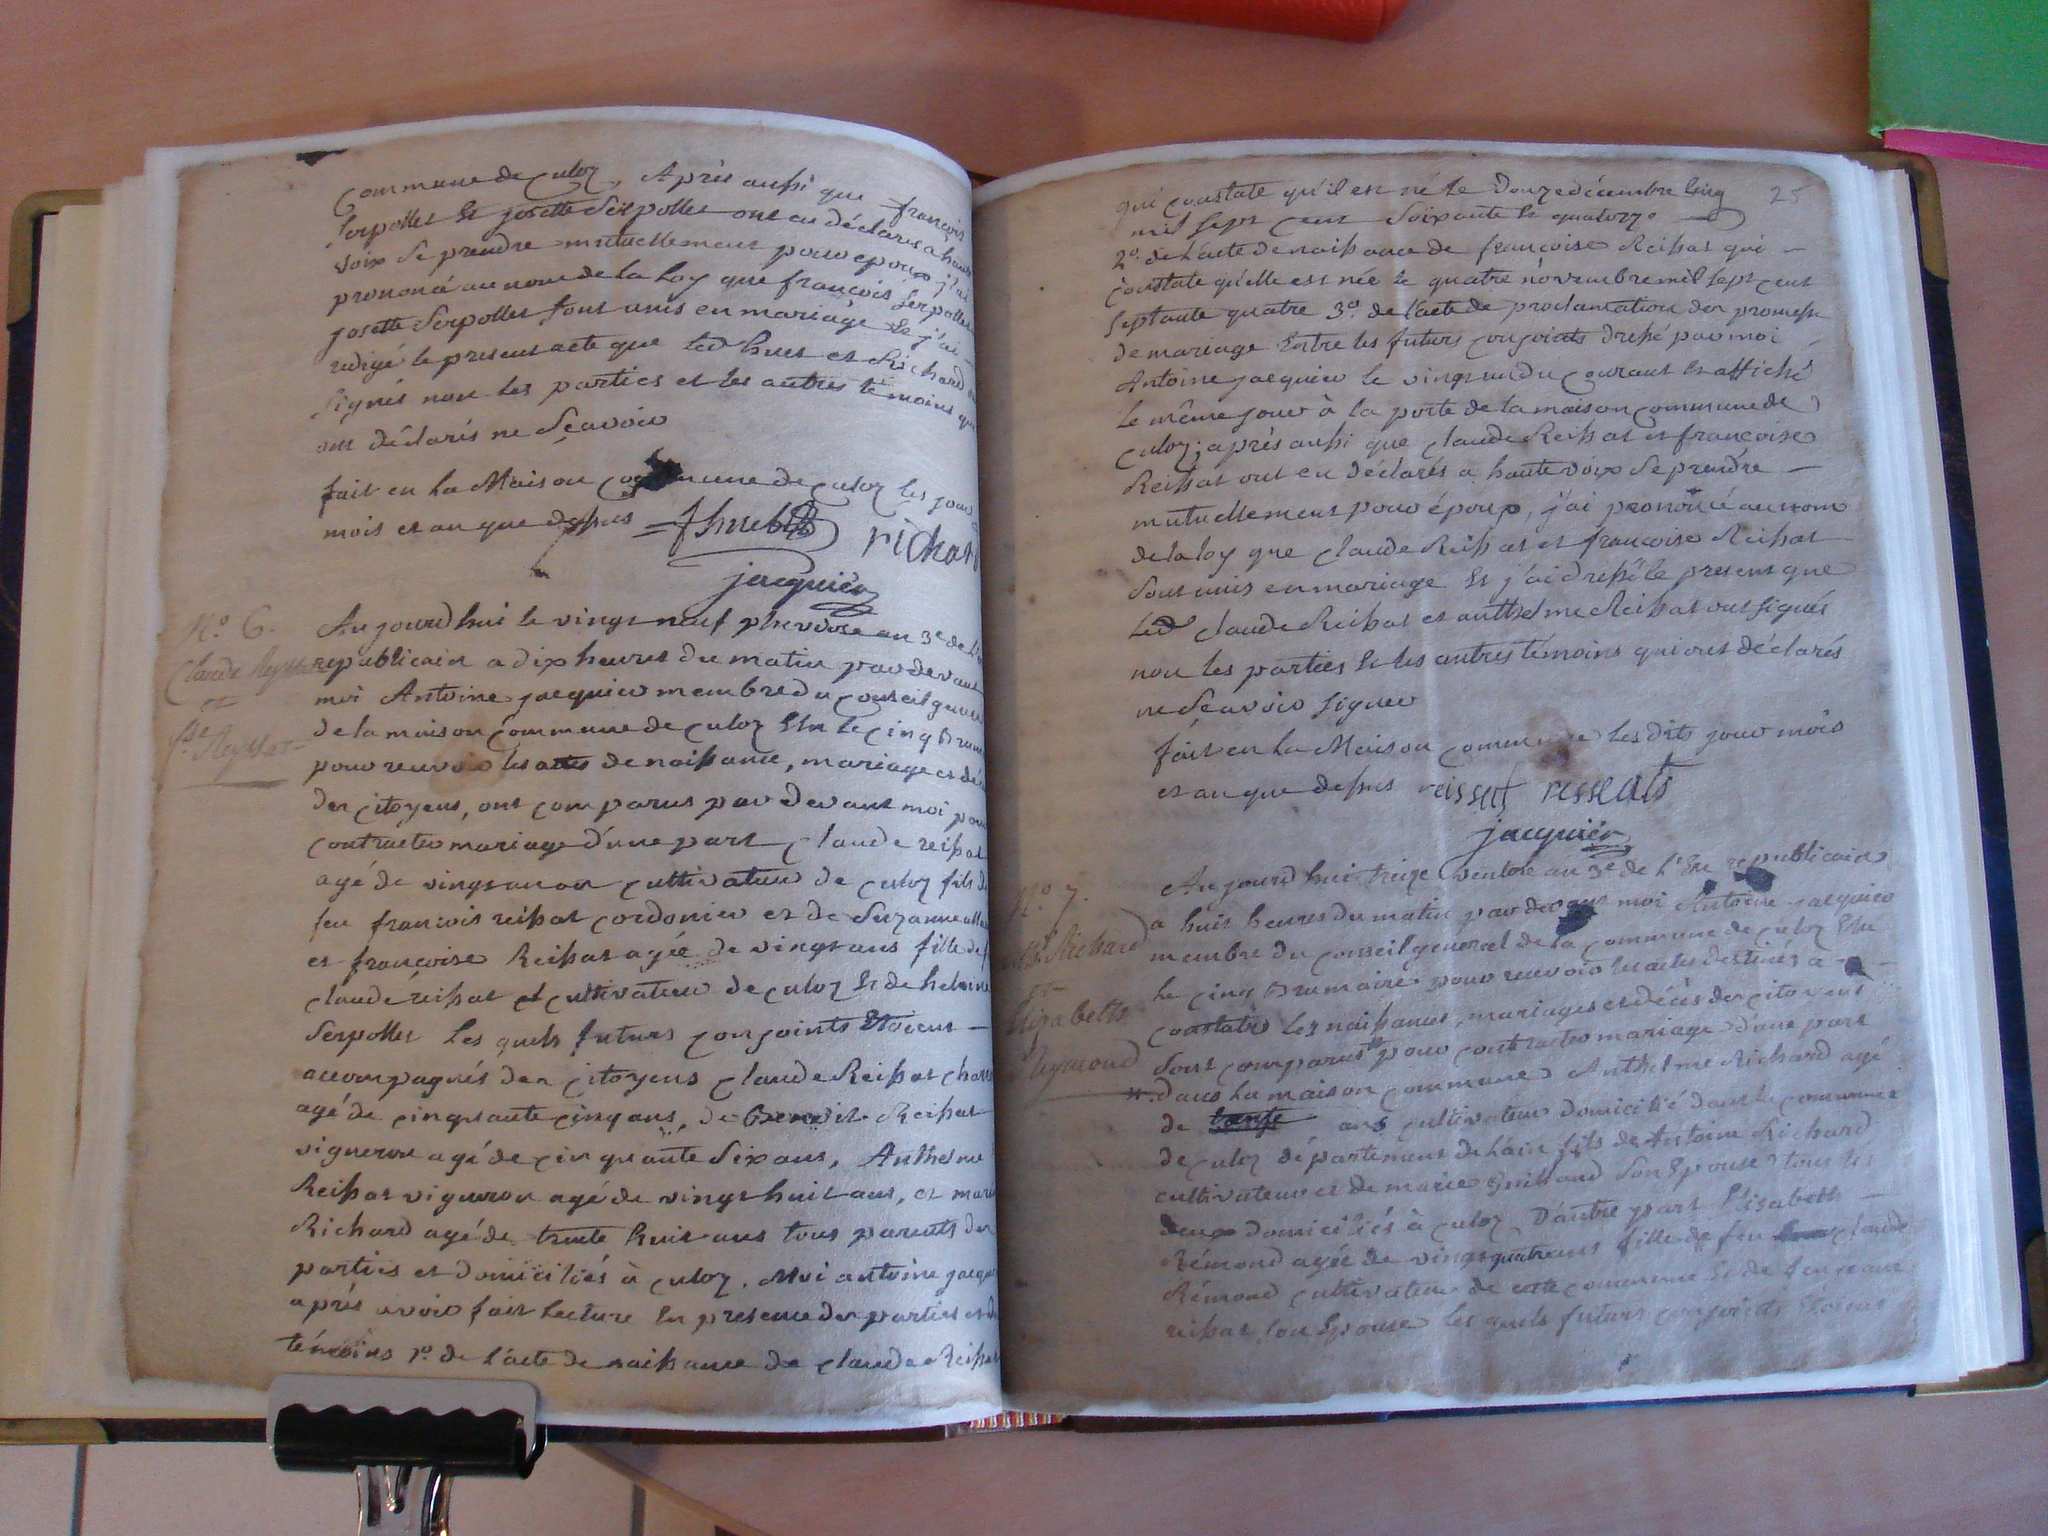 Commune de Culoz, Après aussi que francois
Serpollet Et josette Serpollet ont eu déclarés a haute
voix se prendre mutuellement pour epoux j'ai
prononcé au nom de la Loy que francois Serpollet
josette Serpollet sont unis en mariage Et j'ai
redigé le present acte que led hues et Richard
signés non les parties et les autres témoins qui
ont déclarés ne Sçavoir
fait en la Maison commune de Culoz les jour
mois et an que dessus
richard
jacquier
N.o 6.
Claude Reyssat
et
f.se Reyssat
Aujourdhui le vingt neuf pluviose an 3e de L'Ere
republicain a dix heures du matin par devant
moi Antoine jacquier membre du Conseil general
de la maison Commune de Culoz Elu le cinq Brumaire
pour recevoir les actes de naissance, mariage et décès
des Citoyens, ont comparus par devant moi pour
contracter mariage d'une part Claude reissat
agé de vingt un an cultivateur de Culoz fils de
feu francois reissat cordonier et de Suzanne
et francoise Reissat agée de vingt ans fille de
claude reissat cultivateur de Culoz Et de
Serpollet les quels futurs conjoints Etoient
accompagnés des Citoyens Claude Reissat
agé de cinquante cinq ans, de Benoit Reissat
vigneron agé de cinquante Six ans, Anthelme
Reissat vigneron agé de vingt huit ans, et
Richard agé de trente huit ans tous parents des
parties et domiciliés à Culoz. Moi antoine jacquier
après avoir fait Lecture En presence des parties et des
témoins 1o. de L'acte de naissance de Claude Reissat
25
qui constate qu'il est né le douze décembre
mil Sept Cent Soixante et quatorze
2o. de L'acte de naissance de francoise Reissat qui
Constate qu'elle est née le quatre novembre mil Sept cent
Septante quatre 3o. de L'acte de proclamation des promesse
de mariage Entre les futurs conjoints dressé par moi
Antoine jacquier le vingt un du Courant Et affiché
le même jour à la porte de la maison commune de
Culoz; après aussi que Claude Reissat et francoise
Reissat ont eu déclarés a haute voix se prendre
mutuellement pour époux, j'ai prononcé au nom
de la loy que Claude Reissat et francoise Reissat
Sont unis en mariage Et j'ai dressé le present que
Led Claude Reissat et anthelme Reissat ont signés
non les parties Et les autres témoins qui ont déclarés
ne Sçavoir signer
fait en la Maison commune les dits jour mois
et an que dessus reissat
jacquier
N.o 7.
Richard
et
Elizabeth
Reymond
Aujourdhui treize ventose an 3e de L'Ere republicain
a huit heures du matin par devant moi Antoine jacquier
membre du Conseil general de la Commune de Culoz Elu
le cinq Brumaire pour recevoir les actes destinés a
Constater les naissances, mariages et décès des Citoyens
Sont comparus pour contracter mariage d'une part
dans La maison commune Anthelme Richard agé
de ans cultivateur domicilié dans la Commune
de Culoz département de L'ain fils de Antoine Richard
cultivateur et de marie Guilland Son Epouse tous les
deux domiciliés à Culoz D'autre part Elisabeth
Rémond agée de vingt quatre ans fille de feu Claude
Rémond cultivateur de cette commune Et de
reissat Son Epouse les quels futurs conjoints Etoient